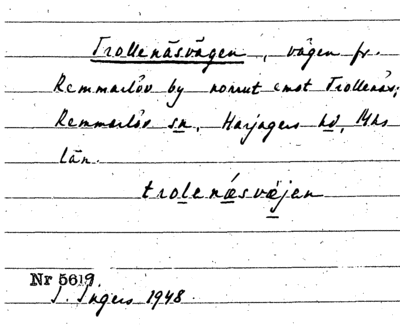 Trollenäsvägen, vägen fr.
Remmarlöv by norrut emot Trollenäs;
Remmarlöv sn, Harjagers hd, Mhs
län.
trolenæsvæjen
Nr 5619.
I. Ingers 1948.